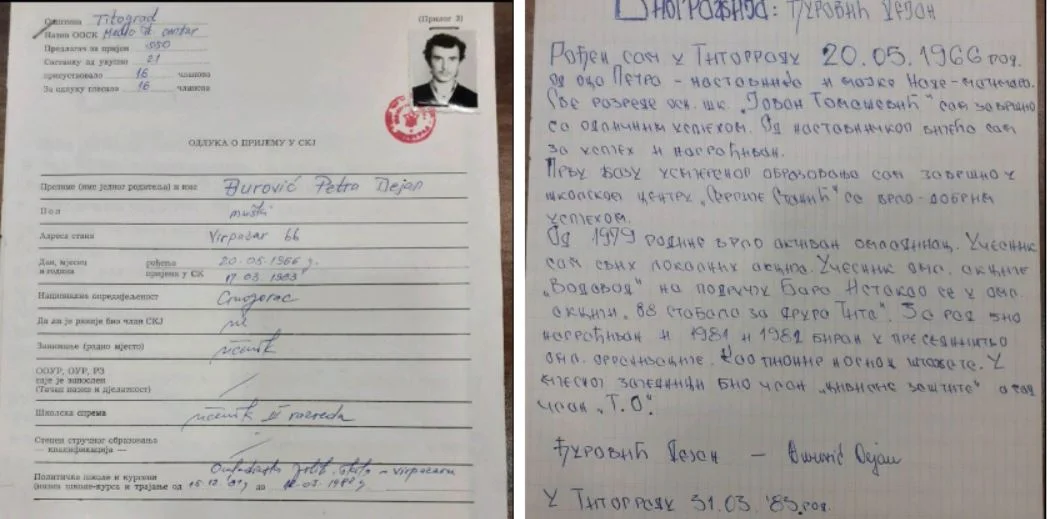 Општина Titograd
(Прилог 3)
Назив ООСК
Предлагач за пријем
Састанку од укупно 21
присуствовало 16 чланова
За одлуку гласало 16 чланова
ОДЛУКА О ПРИЈЕМУ У СКЈ
Презиме (име једног родитеља) и име Đurović Petra Dejan
Пол muški
Адреса стана Virpazar bb
Дан, мјесец и година рођења 20.05.1966 g.
пријема у СК 17.03.1983
Национална опредијељеност Crnogorac
Да ли је раније био члан СКЈ ne
Занимање (радно мјесто) učenik
ООУР, ОУР, РЗ
гдје је запослен
(Тачан назив и дјелатност)
Школска спрема učenik II razreda
Степен стручног образовања
— квалификација —
Политичке школе и курсеви Omladinska polit. škola – Virpazar
(назив школе-курса и трајање од до
БИОГРАФИЈА: ЂУРОВИЋ ДЕЈАН
РОЂЕН САМ У ТИТОГРАДУ 20.05.1966 ГОД.
ОД ОЦА ПЕТРА - НАСТАВНИКА И МАЈКЕ НАДЕ-
СВЕ РАЗРЕДЕ ОСН. ШК. „ЈОВАН ТОМАШЕВИЋ" САМ ЗАВРШИО
СА ОДЛИЧНИМ УСПЈЕХОМ. ОД НАСТАВНИЧКОГ ВИЈЕЋА САМ
ЗА УСПЈЕХ И НАГРАЂИВАН.
ПРВУ ФАЗУ УСМЈЕРЕНОГ ОБРАЗОВАЊА САМ ЗАВРШИО У
ШКОЛСКОМ ЦЕНТРУ „СЕРГИЈЕ СТАНИЋ" СА ВРЛО-ДОБРИМ
УСПЈЕХОМ.
ОД 1979 ГОДИНЕ ВРЛО АКТИВАН ОМЛАДИНАЦ. УЧЕСНИК
САМ СВИХ ЛОКАЛНИХ АКЦИЈА. УЧЕСНИК ОМЛ. АКЦИЈЕ
„ВОДОВОД" НА ПОДРУЧЈУ БАРА ИСТАКАО СЕ У ОМЛ.
АКЦИЈИ „88 СТАБАЛА ЗА ДРУГА ТИТА". ЗА РАД БИО
НАГРАЂИВАН И 1981 И 1982 БИРАН У ПРЕДСЈЕДНИШТВО
ОМЛ. ОРГАНИЗАЦИЈЕ. КАО ПИОНИР НОСИЛАЦ ШТАФЕТЕ. У
МЈЕСНОЈ ЗАЈЕДНИЦИ БИО ЧЛАН „ЦИВИЛНЕ ЗАШТИТЕ" А САД
ЧЛАН „Т.О."
ЂУРОВИЋ ДЕЈАН — Đurović Dejan
У ТИТОГРАДУ 31.03.'83. ГОД.